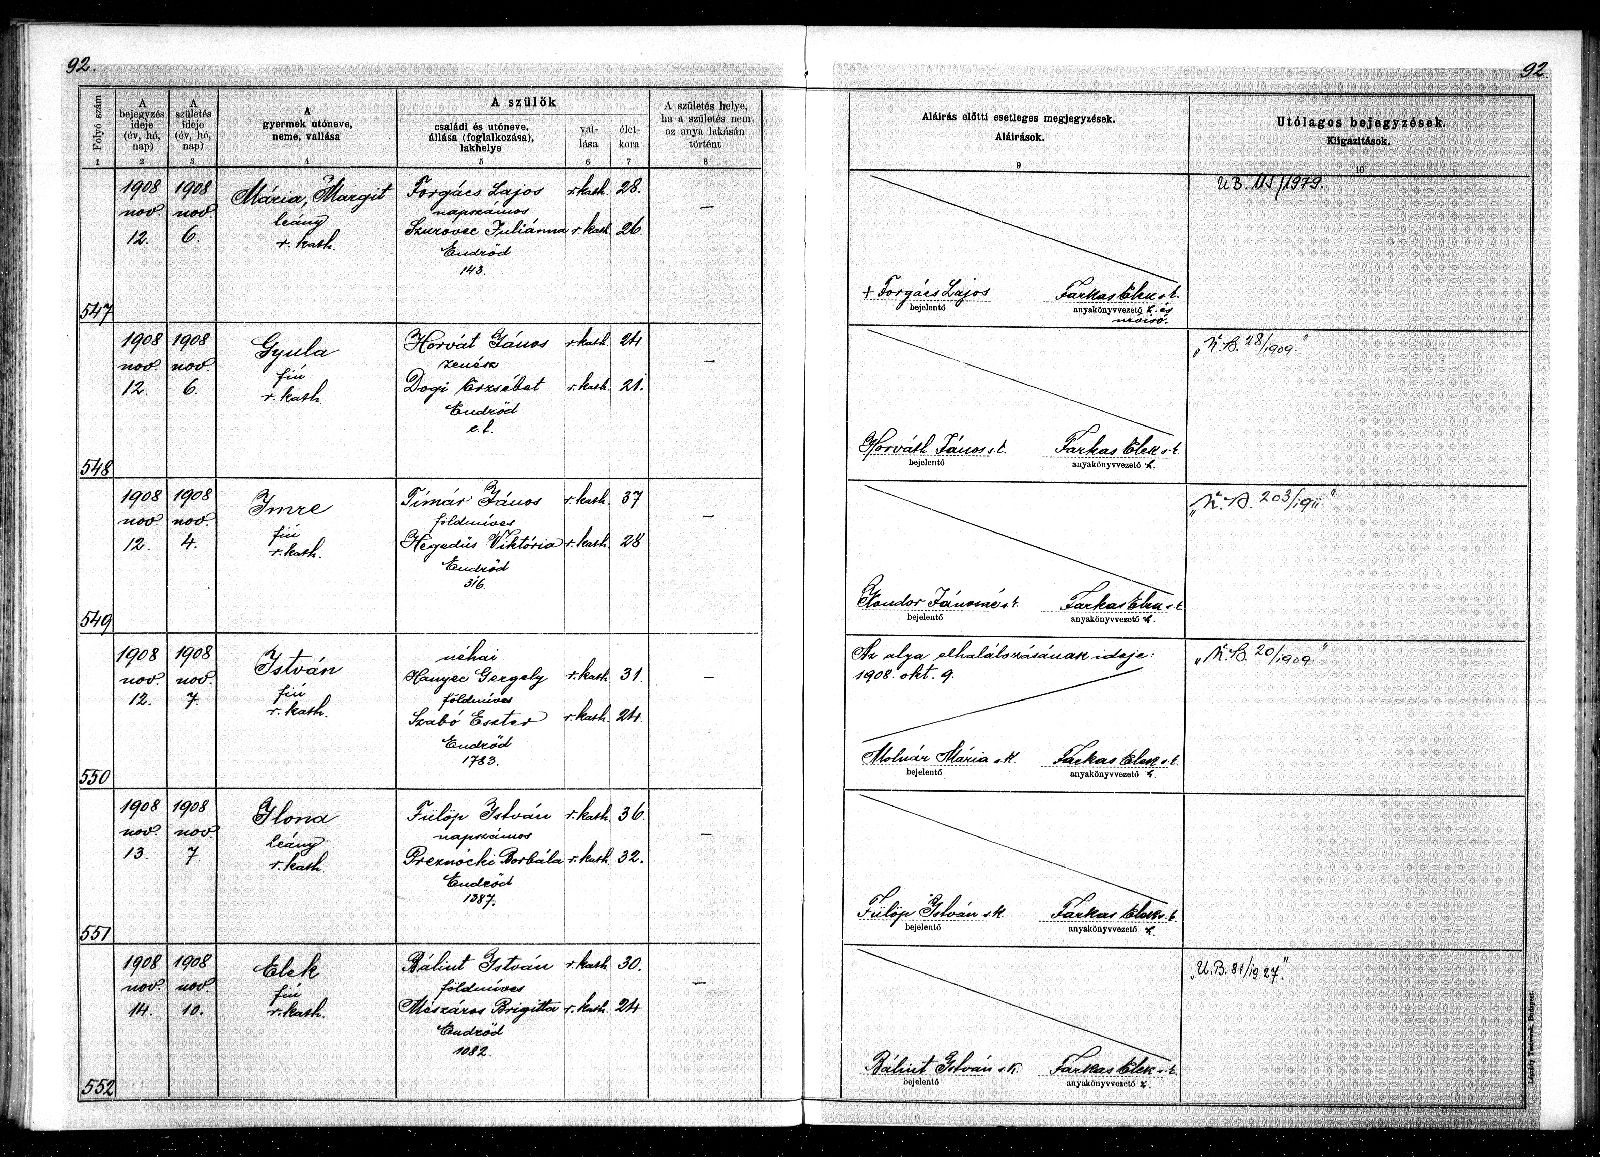 92.
92.
Folyó szám
A bejegyzés ideje (év, hó, nap)
A születés ideje (év, hó, nap)
A gyermek utóneve, neme, vallása
A szülők
családi és utóneve, állása (foglalkozása), lakhelye
val-lása
élet-kora
A születés helye, ha a születés nem az anya lakásán történt
Aláírás előtti esetleges megjegyzések.
Aláírások.
Utólagos bejegyzések.
Kiigazítások.
1 2 3 4 5 6 7 8 9 10
547
1908 nov. 12.
1908 nov. 6.
Mária, Margit
leány
r. kath.
Forgács Lajos r. kath. 28.
napszámos
Szurovec Juliánna r. kath. 26
Endrőd
143.
—
+ Forgács Lajos
bejelentő
Farkas Elek s. k.
anyakönyvvezető h. és
U.B. 115/1979.
548
1908 nov. 12.
1908 nov. 6.
Gyula
fiú
r. kath.
Horvát János r. kath. 24
zenész
Dogi Erzsébet r. kath. 21.
Endrőd
—
Horváth János s. k.
bejelentő
Farkas Elek s. k.
anyakönyvvezető h.
28/1909."
549
1908 nov. 12.
1908 nov. 4.
Imre
fiú
r. kath.
Tímár János r. kath. 37
földmíves
Hegedüs Viktória r. kath. 28
Endrőd
316.
—
Gondor Jánosné s. k.
bejelentő
Farkas Elek s. k.
anyakönyvvezető h.
203/1911"
550
1908 nov. 12.
1908 nov. 7.
István
fiú
r. kath.
néhai
Hanyec Gergely r. kath. 31.
földmíves
Szabó Eszter r. kath. 24.
Endrőd
1783.
—
Az atya elhalálozásának ideje:
1908. okt. 9.
Molnár Mária s. k.
bejelentő
Farkas Elek s. k.
anyakönyvvezető h.
20/1909"
551
1908 nov. 13.
1908 nov. 7
Ilona
leány
r. kath.
Fülöp István r. kath. 36.
napszámos
Preznócki Borbála r. kath. 32.
Endrőd
1387.
—
Fülöp István s. k.
bejelentő
Farkas Elek s. k.
anyakönyvvezető h.
552
1908 nov. 14.
1908 nov. 10.
Elek
fiú
r. kath.
Bálint István r. kath. 30.
földmíves
Mészáros Brigitta r. kath. 24
Endrőd
1082.
—
Bálint István s. k.
bejelentő
Farkas Elek s. k.
anyakönyvvezető h.
„U.B. 81/1927."